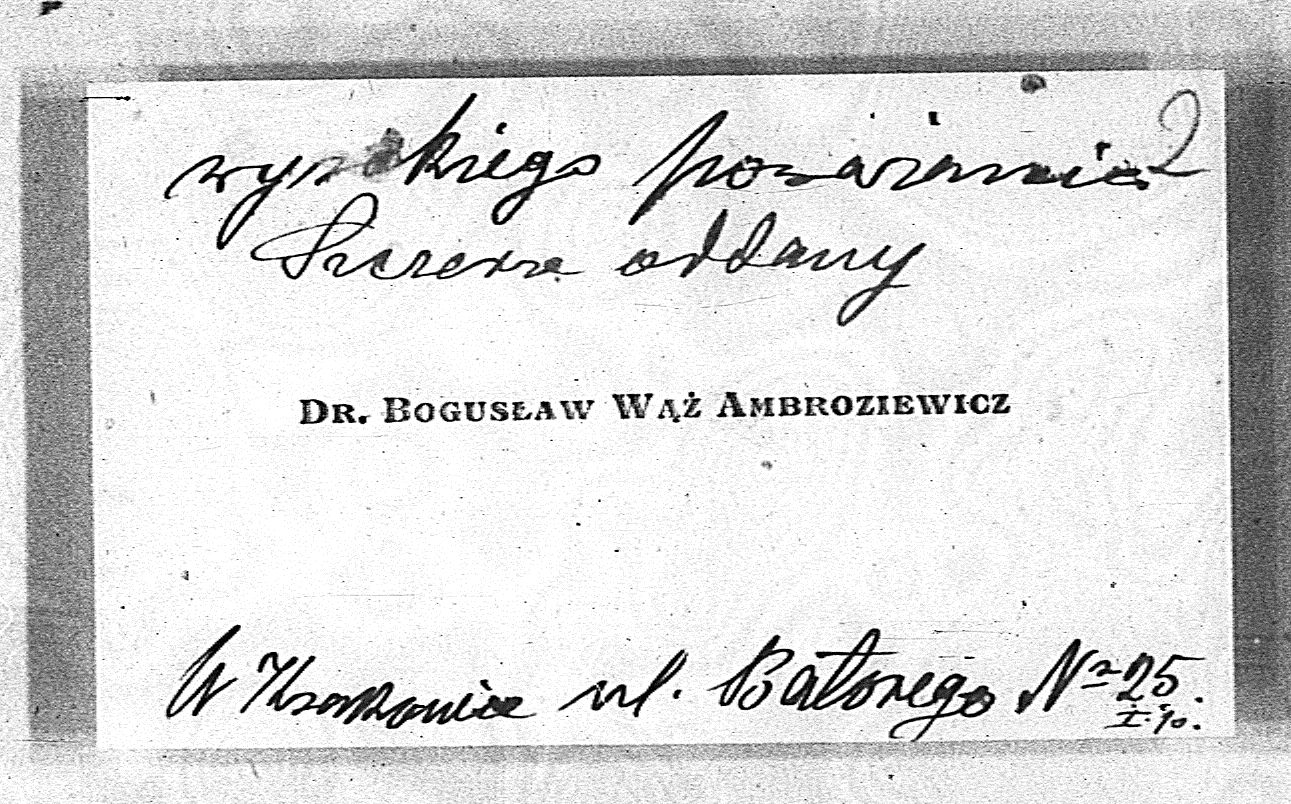 wysokiego poważania
Szczerze oddany
DR. BOGUSŁAW WĄŻ AMBROZIEWICZ
W Krakowie ul. Batorego Nr 25.
I. p.